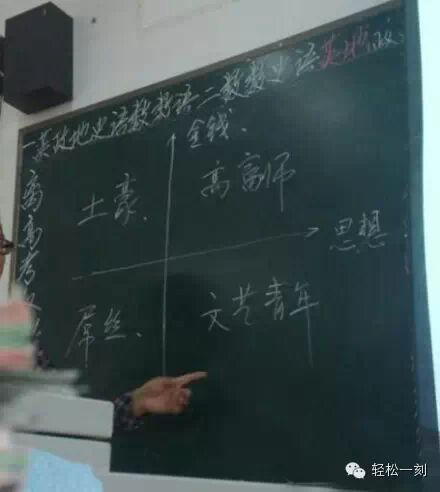 一英政地史语数数语二数数史语英地政
离高考
金钱、
土豪、
高富师
思想
屌丝、
文艺青年
轻松一刻